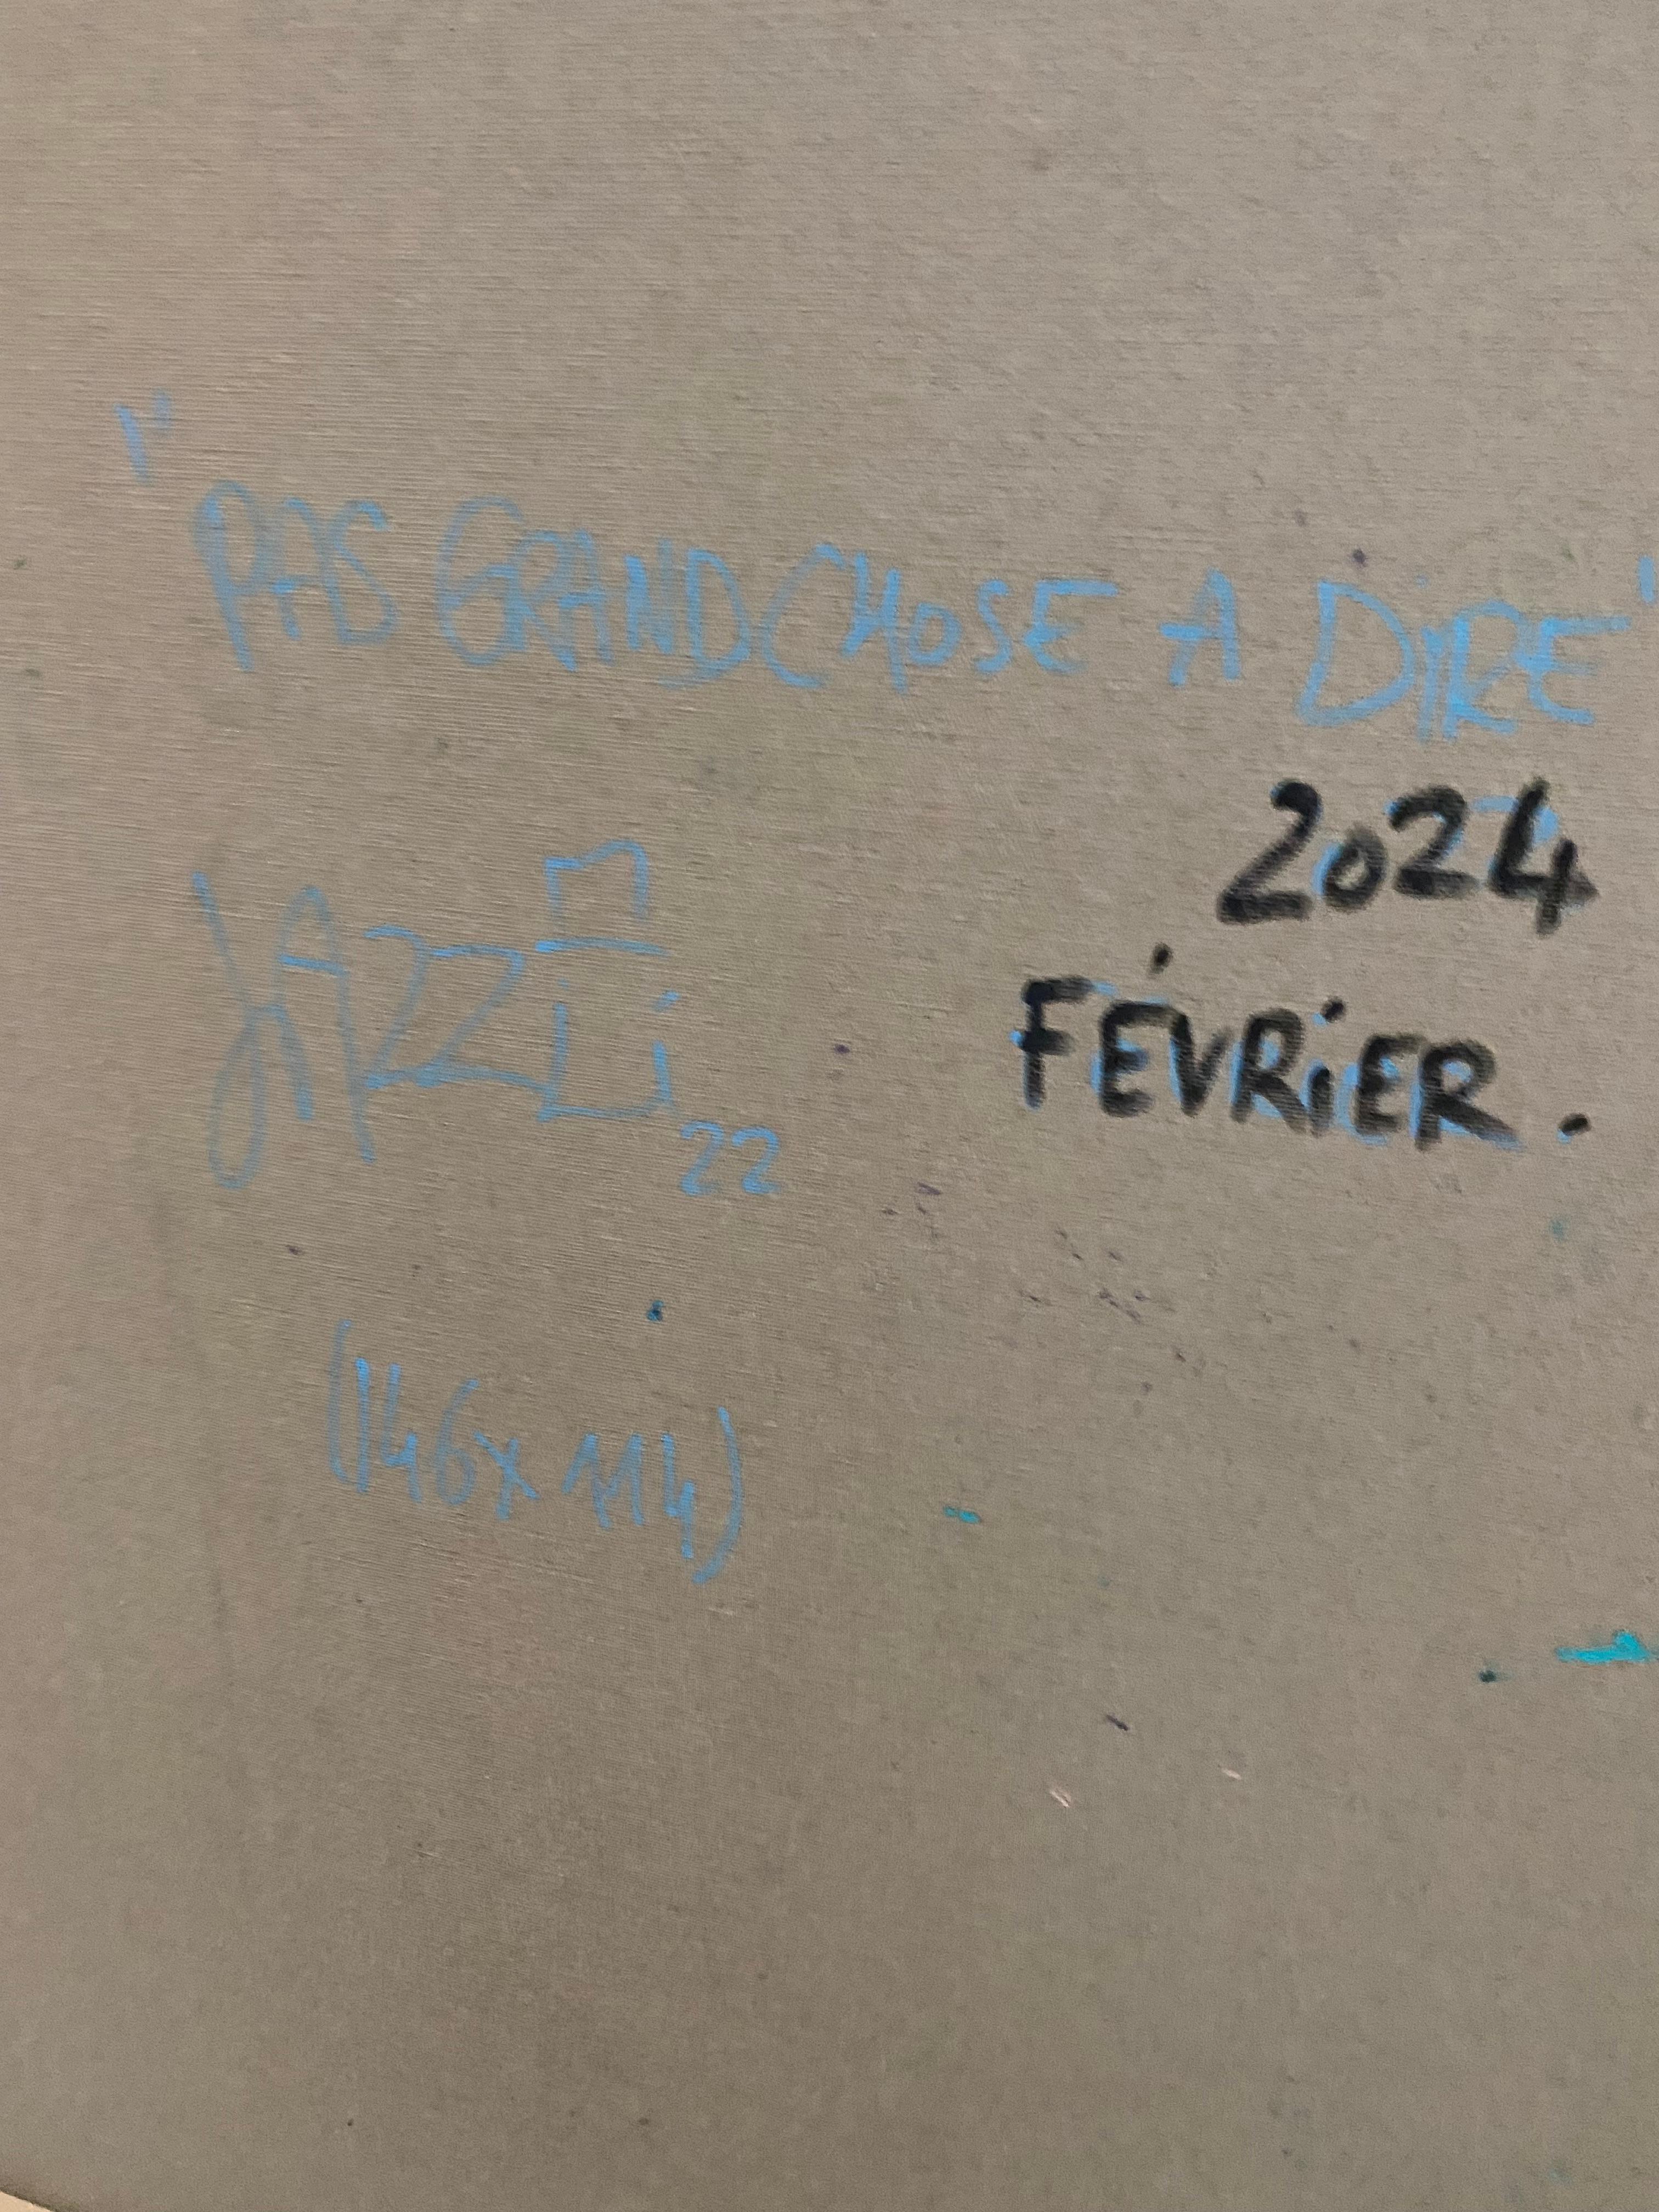 "PAS GRAND CHOSE A DIRE"
2024
FÉVRIER.
JAZZ Li 22
(146 x 114)